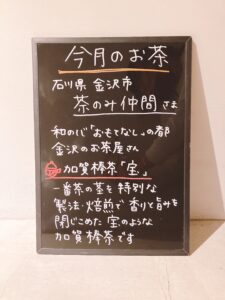 今月のお茶
石川県 金沢市
茶のみ仲間さま
和の心「おもてなし」の都
金沢のお茶屋さん
加賀棒茶「宝」
一番茶の茎を特別な
製法・焙煎で香りと旨みを
閉じこめた宝のような
加賀棒茶です